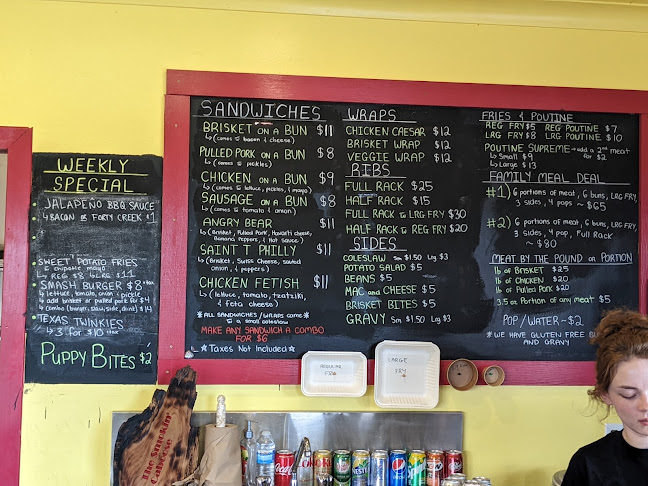 WEEKLY
SPECIAL
JALAPEÑO BBQ SAUCE
& BACON OR FORTY CREEK $1
SWEET POTATO FRIES
& chipotle mayo
REG $8 LRG $11
SMASH BURGER $8
lettuce, tomato, onion, pickle
add brisket or pulled pork for $4
Combo (burger, slaw, side, drink) $14
TEXAS TWINKIES
3 for $10
PUPPY BITES $2
SANDWICHES
BRISKET ON A BUN $11
(comes to bacon & cheese)
PULLED PORK ON A BUN $8
(comes to pickles)
CHICKEN ON A BUN $9
(comes to lettuce, pickles, & mayo)
SAUSAGE ON A BUN $8
(comes to tomato & onion)
ANGRY BEAR $11
(Brisket, Pulled Pork, Havarti cheese,
Banana peppers, & Hot Sauce)
SAINT T PHILLY $11
(Brisket, Swiss Cheese, sautéed
onion, & peppers)
CHICKEN FETISH $11
(lettuce, tomato, tzatziki,
& feta cheese)
*ALL SANDWICHES/WRAPS come
to a small coleslaw
MAKE ANY SANDWICH A COMBO
FOR $6
★ Taxes Not Included ★
WRAPS
CHICKEN CAESAR $12
BRISKET WRAP $12
VEGGIE WRAP $12
RIBS
FULL RACK $25
HALF RACK $15
FULL RACK & LRG FRY $30
HALF RACK & REG FRY $20
SIDES
COLESLAW Sm $1.50 Lrg $3
POTATO SALAD $5
BEANS $5
MAC AND CHEESE $5
BRISKET BITES $5
GRAVY Sm $1.50 Lrg $3
FRIES & POUTINE
REG FRY $5 REG POUTINE $7
LRG FRY $8 LRG POUTINE $10
POUTINE SUPREME → add a 2nd meat
for $2
Small $9
Large $13
FAMILY MEAL DEAL
#1) 6 portions of meat, 6 buns, LRG FRY,
3 sides, 4 pops ~ $65
#2) 6 portions of meat, 6 buns, LRG FRY,
3 sides, 4 pop, Full Rack
~ $80
MEAT BY THE POUND OR PORTION
lb of BRISKET $25
lb of CHICKEN $20
lb of Pulled Pork $20
3.5 oz Portion of any meat $5
POP/WATER ~ $2
*WE HAVE GLUTEN FREE
AND GRAVY
REGULAR
FRY
LARGE
FRY
The Smokin'
Caboose